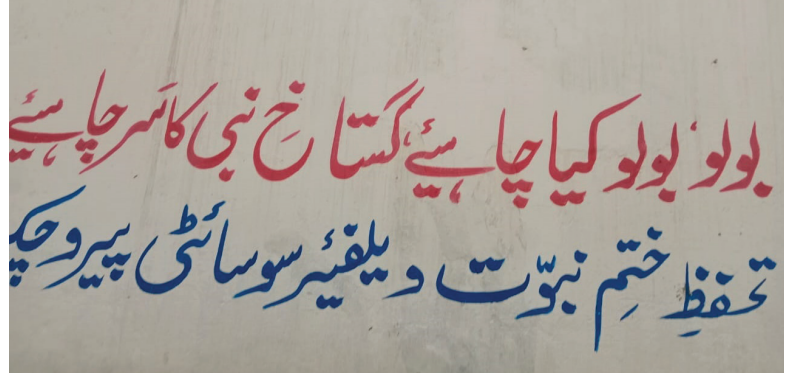 بولو، بولو کیا چاہئیے گستاخِ نبی کا سَر چاہئیے
تحفظِ ختمِ نبوّت ویلفیئر سوسائٹی پیرو